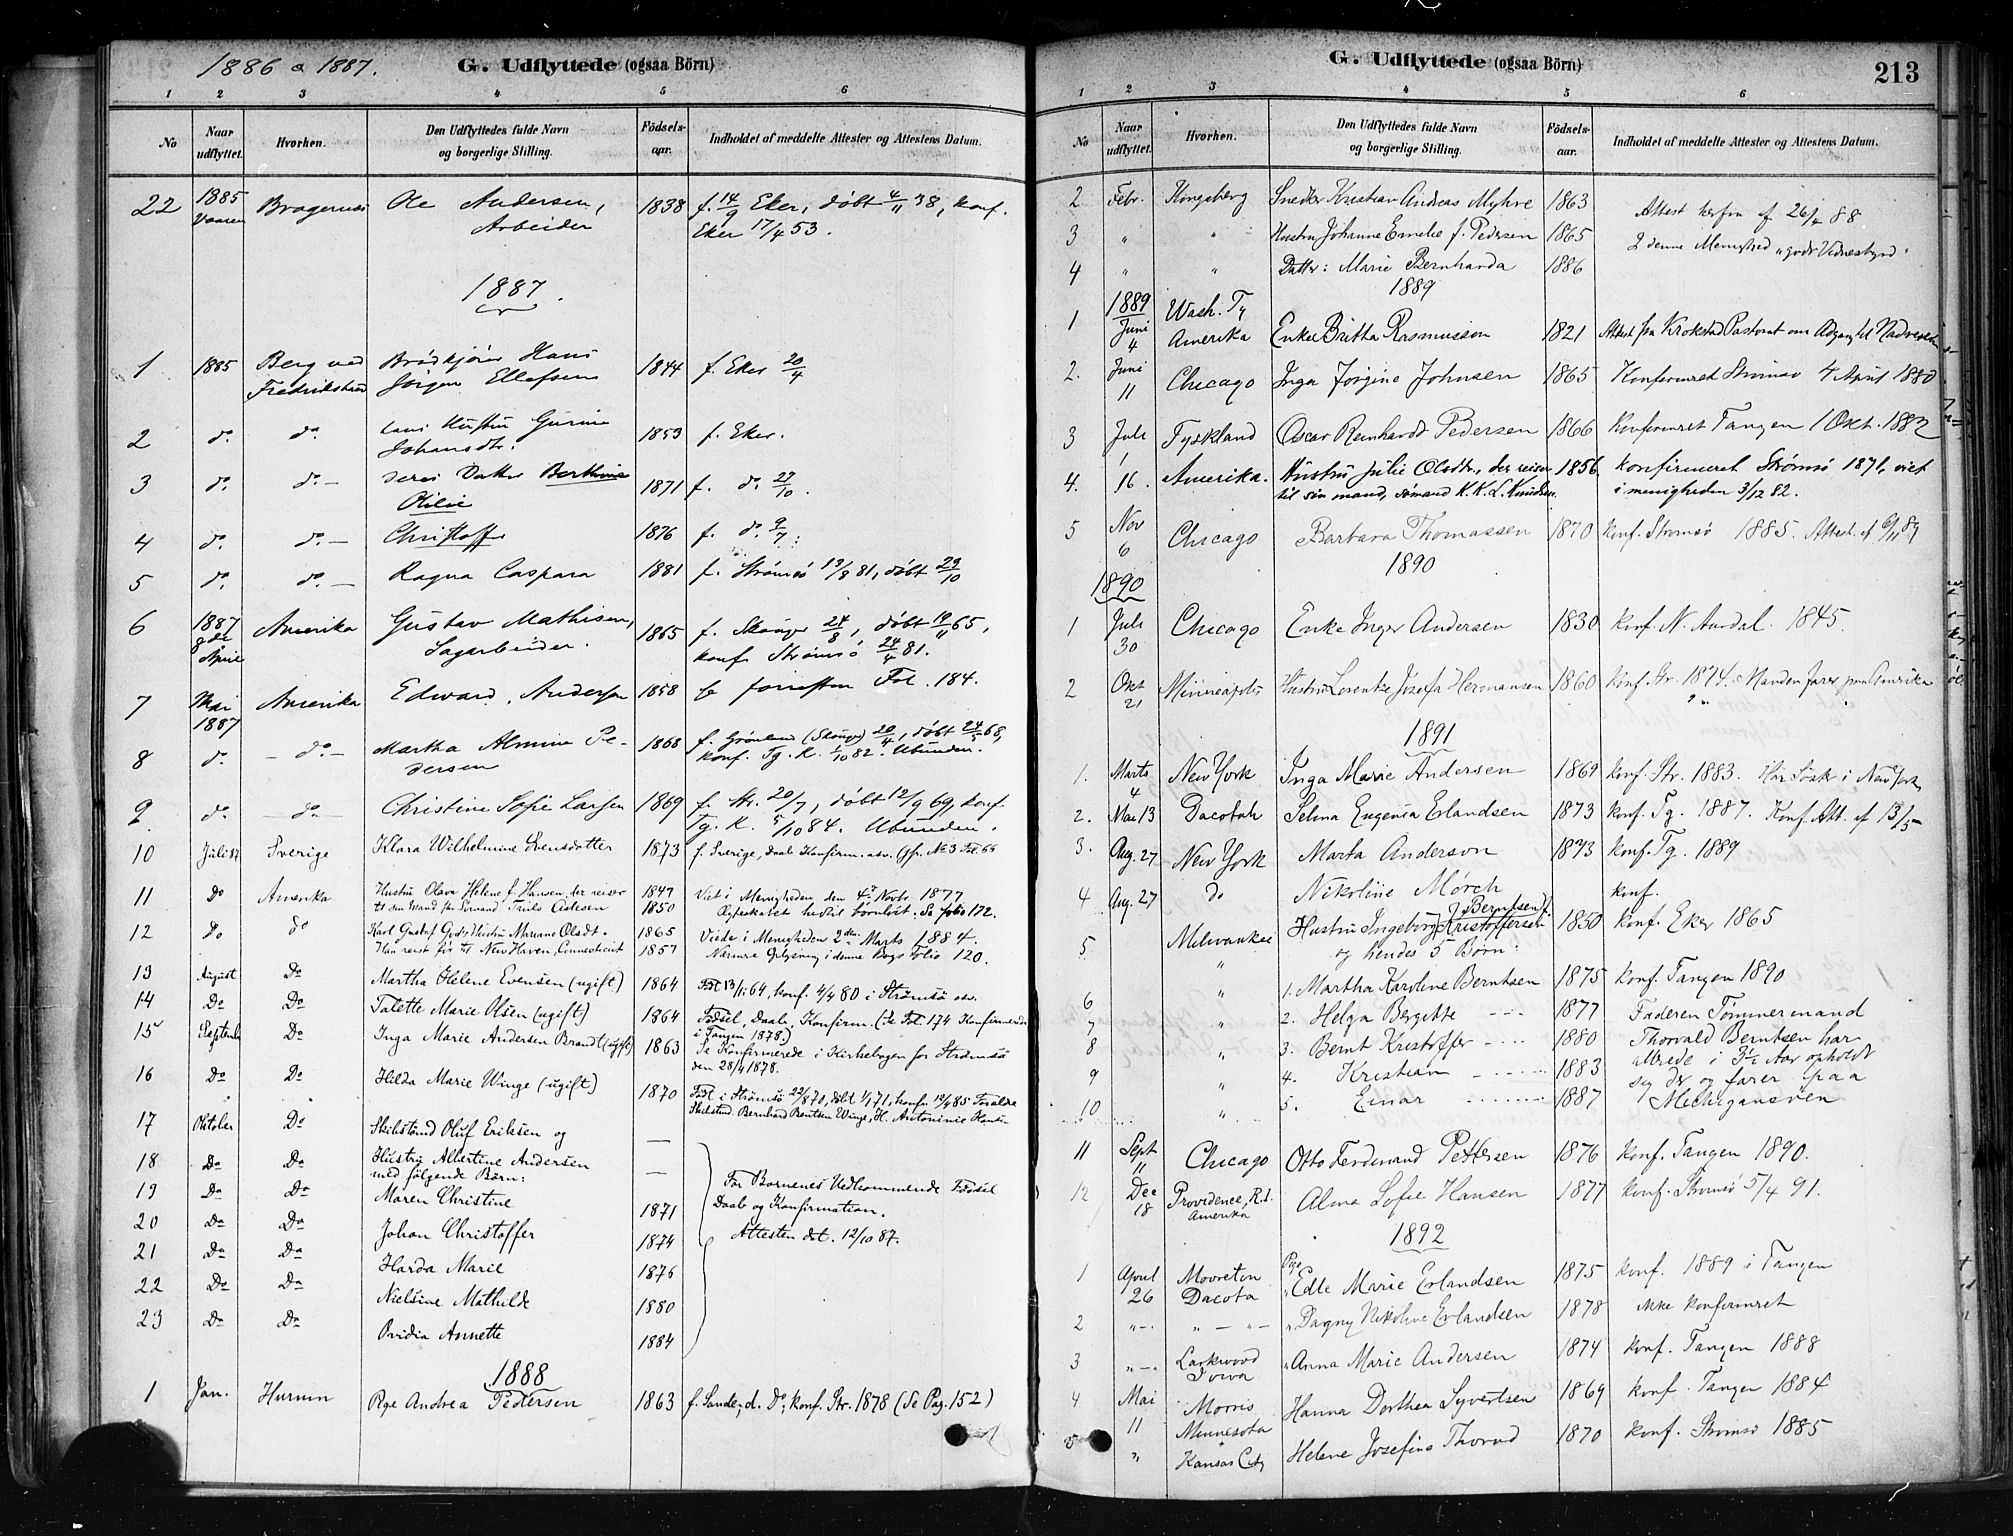 1886 & 1887.
G. Udflyttede (ogsaa Börn)
1 2 3 4 5 6
No
Naar udflyttet.
Hvorhen.
Den Udflyttedes fulde Navn og borgerlige Stilling.
Födsels-aar.
Indholdet af meddelte Attester og Attestens Datum.
22 1885 Vaaren Bragernes Ole Andersen, 1838 f. 14/9 Eker, döbt 4/11 38, konf.
Arbeider Eker 17/4 53.
1887.
1 1885 Berg ved Brödkjörer Hans 1844 f. Eker 20/4
Fredrikstad Jörgen Ellefsen
2 do. do. hans Hustru Gurine 1853 f. Eker.
Johansdtr.
3 do. do.– deres Datter Berthine 1871 f. do. 27/10.
Otilie
4 do. do.– Christoffer 1876 f. do. 9/7
5 do. do.– Ragna Caspara 1881 f. Strømsö 13/8 81, döbt 23/10
6 1887 8de April Amerika Gustav Mathisen, 1865 f. Skouger 24/8, döbt 19/11 65,
Sagarbeider. konf. Strömsö 24/4 81.
7 Mai 1887 Amerika Edward Andersen 1858 Fol. 184.
8 do. – do.– Martha Almine Pe- 1868 f. Grönland (Skouger) 20/4, döbt 24/5 68,
dersen konf. Tg. K. 1/10 82. Ubunden.
9 do. – do – Christine Sofie Larsen 1869 f. Str. 20/7, döbt 12/9 69, konf.
Tg. K. 5/10 84. Ubunden.
10 Juli 87 Sverige Klara Wilhelmine Svensdatter 1873 f. Sverige, Daab Konfirm. No 3 Fol 65
11 Do Amerika Hustru Olava Helene f. Hansen, der reiser 1847 Viet i Menigheden den 4de Novbr. 1877
til sin Mand 1850 Ægteskabet hidtil børnløst. Se folio 172.
12 Do do Karl Gustaf Hustru Mariane Olsdt. 1865 Viede i Menigheden 2den Marts 1884.
Han reist før til New Haven, Connecticut 1857 Nærmere Oplysning i denne Bogs Folio 120.
13 August Do Martha Helene Evensen (ugift) 1864 Født 13/1 64, konf. 4/4 80 i Strømsö
14 Do Do Talette Marie Olsen (ugift) 1864 Fødsel, Daab, Konfirm. (Se Fol. 174 Konfirmerede
i Tangen 1878.)
15 Septemb. Do Inga Marie Andersen Brandt (ugift) 1863 Se Konfirmerede i Kirkebogen for Strømsö
den 28/4 1878.
16 Do Do Hilda Marie Winge (ugift) 1870 Født i Strømsö 22/8 70, döbt 1/1 71, konfr. 12/4 85 Forældre
Skibstmd. Bernhard Berntsen Winge, H. Antoninie Hansen
17 Oktober Do Skibstmd Oluf Eriksen og —
18 Do Do Hustru Albertine Andersen —
med følgende Børn:
19 Do Do Maren Christine 1871 For Børnenes Vedkommende Fødsel
20 Do Do Johan Christoffer 1874 Daab og Konfirmation.
21 Do Do Harda Marie 1876 Attesten dat. 12/10 87.
22 Do Do Nielsine Mathilde 1880
23 Do Do Ovidia Annette 1884
1888
1 Jan. Hurum Pige Andrea Pedersen 1863 f. Sande, d. Do, konf. Str. 1878 (Se Pag. 152)
G. Udflyttede (ogsaa Börn)
213
1 2 3 4 5 6
No
Naar udflyttet.
Hvorhen.
Den Udflyttedes fulde Navn og borgerlige Stilling.
Födsels-aar.
Indholdet af meddelte Attester og Attestens Datum.
2 Febr. Kongsberg Snedker Kristian Andreas Myhre 1863 Attest herfra af 26/4 88
3 " " Hustru Johanne Emelie f. Pedersen 1865 I denne Menighed "godt Vidnesbyrd"
4 " " Datter: Marie Bernharda 1886
1889
1 1889 Juni 4 Wash. Ty Amerika Enke Britta Rasmussen 1821 Attest fra Krokstad Pastorat om Adgang til Nadveren
2. Juni 11 Chicago Inga Jörgine Johnsen 1865 Konfirmeret Strömsö 4 April 1880
3 Juli 1 Tyskland Oscar Reinhardt Pedersen 1866 Konfirmeret Tangen 1 Okt. 1882
4. 16. Amerika. Hustru Julie Olsdtr., der reiser 1856 konfirmeret Strømsö 1871, viet
til sin mand, sømand K. K. L. Knudsen. i menigheden 3/12 82.
5 Nov 6 Chicago Barbara Thomassen 1870 konf. Strömsö 1885. Attest af 6/11 89
1890
1890
1 Juli 30 Chicago Enke Inger Andersen 1830 Konf. N. Aurdal. 1845.
2 Okt 21 Minneapolis Hustru Lorentze Josefa Hermansen 1860 konf. Str. 1874. Manden farer paa Amerika
1891
1. Marts 4 New York Inga Marie Andersen 1869 konf. Str. 1883. Har Søster i New York
2. Mai 13 Dacotah Selma Eugenia Erlandsen 1873 konf. Tg. 1887. Konf. Att. af 13/5
3. Aug. 27 New York Marta Andersen 1873 konf. Tg. 1889
4 Aug. 27 do Nikoline Mörch konf.
5 Milwaukee Hustru Ingeborg Berntsen f. Kristoffersen 1850 konf. Eker 1865
" og hendes 5 Børn:
6 " 1. Martha Karoline Berntsen 1875 konf. Tangen 1890
7 " 2. Helga Bergitte – – – 1877 Faderen Tömmermand
8 " 3. Bernt Kristoffer – – – 1880 Thorvald Berntsen har
9 " 4. Kristian – – – 1883 allerede i 3½ Aar opholdt
10 " 5. Einar – – – 1887 sig der og farer paa
Michigansöen
11 Sept 11 Chicago Otto Ferdinand Pettersen 1876 konf. Tangen 1890.
12 Dec 18 Providence, R.I. Amerika Alma Sofie Hansen 1877 konf. Strömsö 5/4 91.
1892
1 April 26 Mooreton Dacota Pige Edle Marie Erlandsen 1875 konf. 1889 i Tangen
2 " – " – " – " Dagny Nikoline Erlandsen 1878 ikke konfirmeret
3 " – Larkwood " Anna Marie Andersen 1874 konf. Tangen 1888
4 Mai 11 Morris Minnesota Hanna Dorthea Syvertsen 1869 konf. Tangen 1884
5 " Kansas City Helene Josefine Thorud 1870 konf. Strömsö 1885